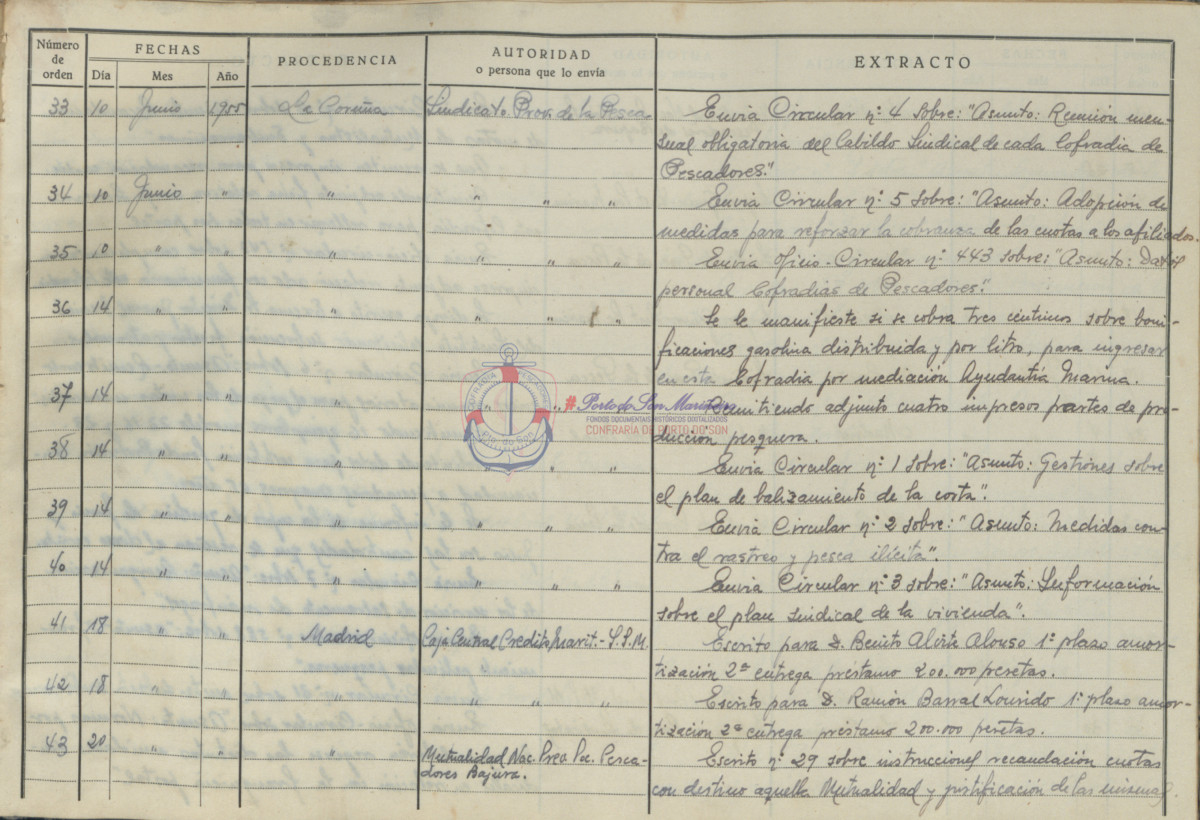 Número de orden
FECHAS
Día Mes Año
PROCEDENCIA
AUTORIDAD
o persona que lo envía
EXTRACTO
33 10 Junio 1955 La Coruña Sindicato Prov. de la Pesca Envia Circular nº 4 sobre: "Asunto: Reunión men-
sual obligatoria del Cabildo Sindical de cada Cofradia de
Pescadores".
34 10 Junio " " " " " Envia Circular nº 5 sobre: "Asunto: Adopción de
medidas para reforzar la cobranza de las cuotas a los afiliados.
35 10 " " " " " " Envia Oficio-Circular nº 443 sobre: "Asunto:
personal Cofradias de Pescadores".
36 14 " " " " " " Se le manifieste si se cobra tres centimos sobre boni-
ficaciones gasolina distribuida y por litro, para ingresar
en esta Cofradia por mediación Ayudantía Marina.
37 14 " " " " " " Remitiendo adjunto cuatro impresos partes de pro-
ducción pesquera.
38 14 " " " " " " Envia Circular nº 1 sobre: "Asunto: Gestiones sobre
el plan de balizamiento de la costa".
39 14 " " " " " " Envia Circular nº 2 sobre: "Asunto: Medidas con-
tra el rastreo y pesca ilícita".
40 14 " " " " " " Envia Circular nº 3 sobre: "Asunto: Información
sobre el plan sindical de la vivienda".
41 18 " " Madrid Caja Central Credito Marit.- S.S.M. Escrito para D. Benito Alvite Alonso 1º plazo amor-
tización 2ª entrega préstamo 200.000 pesetas.
42 18 " " " " " " Escrito para D. Ramón Barral Lourido 1º plazo amor-
tización 2ª entrega préstamo 200.000 pesetas.
43 20 " " " Mutualidad Nac. Prev. Pescadores Bajura. Escrito nº 29 sobre instrucciones recaudación cuotas
con destino aquella Mutualidad y justificación de las mismas.
#Porto do Son Mariñeiro
FONDOS DOCUMENTAIS HISTÓRICOS DIXITALIZADOS
CONFRARÍA DE PORTO DO SON